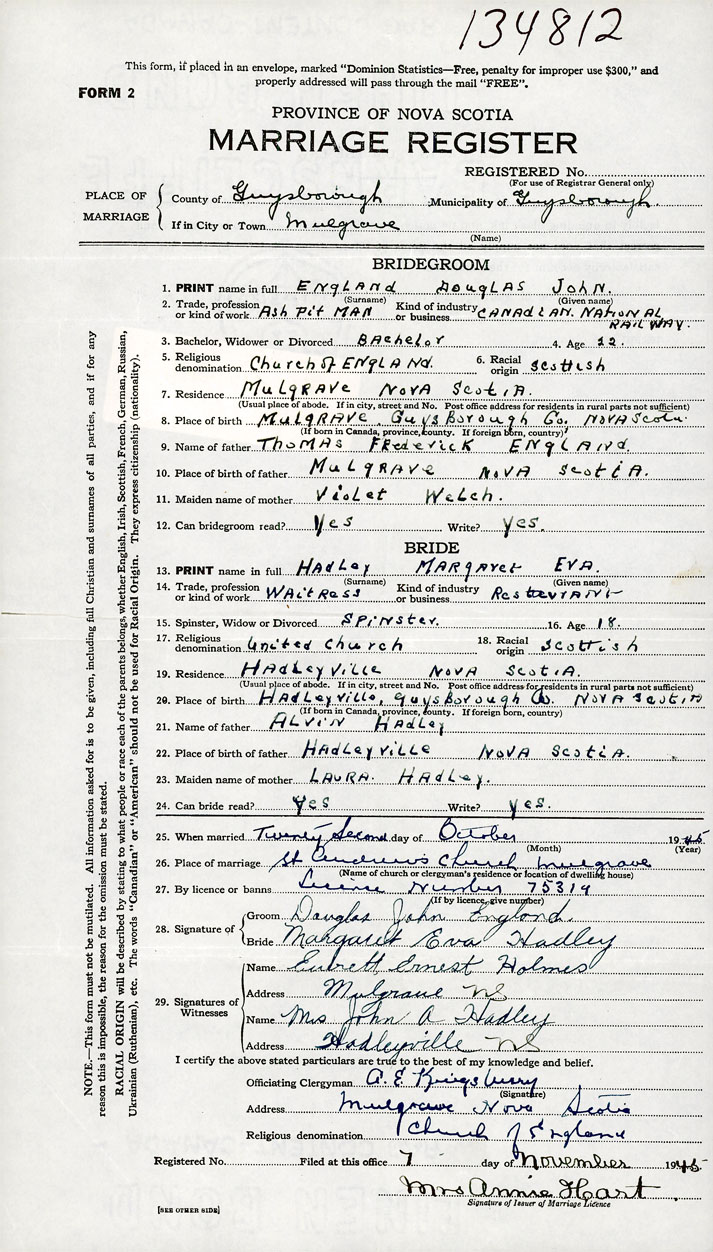 134812
This form, if placed in an envelope, marked "Dominion Statistics—Free, penalty for improper use $300," and
properly addressed will pass through the mail "FREE".
FORM 2
PROVINCE OF NOVA SCOTIA
MARRIAGE REGISTER
REGISTERED No.
(For use of Registrar General only)
PLACE OF MARRIAGE
County of Guysborough Municipality of Guysborough
If in City or Town Mulgrave
(Name)
BRIDEGROOM
1. PRINT name in full ENGLAND DOUGLAS JOHN.
(Surname) (Given name)
2. Trade, profession or kind of work Ash Pit MAN Kind of industry or business CANADIAN. NATIONAL RAILWAY.
3. Bachelor, Widower or Divorced BACHELOR 4. Age 22.
5. Religious denomination Church of ENGLAND. 6. Racial origin Scottish
7. Residence MULGRAVE NOVA SCOTIA.
(Usual place of abode. If in city, street and No. Post office address for residents in rural parts not sufficient)
8. Place of birth MULGRAVE, GuysBorough Co. NOVA Scotia
(If born in Canada, province, county. If foreign born, country)
9. Name of father THOMAS FREderick ENGLAND.
10. Place of birth of father MULGRAVE NOVA SCOTIA.
11. Maiden name of mother Violet Welch.
12. Can bridegroom read? Yes Write? Yes.
BRIDE
13. PRINT name in full HADLEY MARGARET EVA.
(Surname) (Given name)
14. Trade, profession or kind of work WAITRESS Kind of industry or business RESTEURANT
15. Spinster, Widow or Divorced SPINSTER. 16. Age 18.
17. Religious denomination United Church 18. Racial origin Scottish
19. Residence HADLEYVILLE NOVA SCOTIA.
(Usual place of abode. If in city, street and No. Post office address for residents in rural parts not sufficient)
20. Place of birth HADLEYVILLE, GuysBorough Co. NOVA SCOTIA
(If born in Canada, province, county. If foreign born, country)
21. Name of father ALVIN HADLEY
22. Place of birth of father HADLEYVILLE NOVA SCOTIA.
23. Maiden name of mother LAURA. HADLEY.
24. Can bride read? Yes Write? Yes.
25. When married Twenty Second day of October 1945
(Month) (Year)
26. Place of marriage St Andrew's Church Mulgrave
(Name of church or clergyman's residence or location of dwelling house)
27. By licence or banns License Number 75319
(If by licence, give number)
28. Signature of
Groom Douglas John England.
Bride Margaret Eva Hadley
29. Signatures of Witnesses
Name Everett Ernest Holmes
Address Mulgrave NS
Name Mrs John A Hadley
Address Hadleyville NS
I certify the above stated particulars are true to the best of my knowledge and belief.
Officiating Clergyman A. E. Kingsbury
(Signature)
Address Mulgrave Nova Scotia
Religious denomination Church of England
Registered No. Filed at this office 7 day of November 1945
Mrs Annie Hart.
Signature of Issuer of Marriage Licence
[SEE OTHER SIDE]
NOTE.—This form must not be mutilated. All information asked for is to be given, including full Christian and surnames of all parties, and if for any
reason this is impossible, the reason for the omission must be stated.
RACIAL ORIGIN will be described by stating to what people or race each of the parents belongs, whether English, Irish, Scottish, French, German, Russian,
Ukrainian (Ruthenian), etc. The words "Canadian" or "American" should not be used for Racial Origin. They express citizenship (nationality).